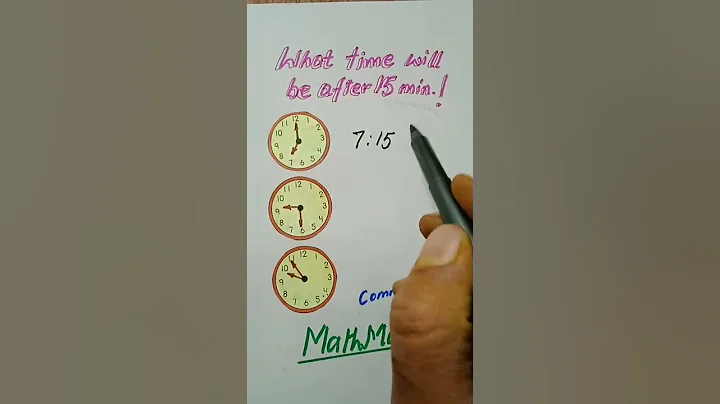 What time will
be after 15 min.!
11 12 1
10 2
9 3
8 4
7 6 5
7:15
11 12 1
10 2
9 3
8 4
7 6 5
11 12 1
10 2
9 3
8 4
7 6 5